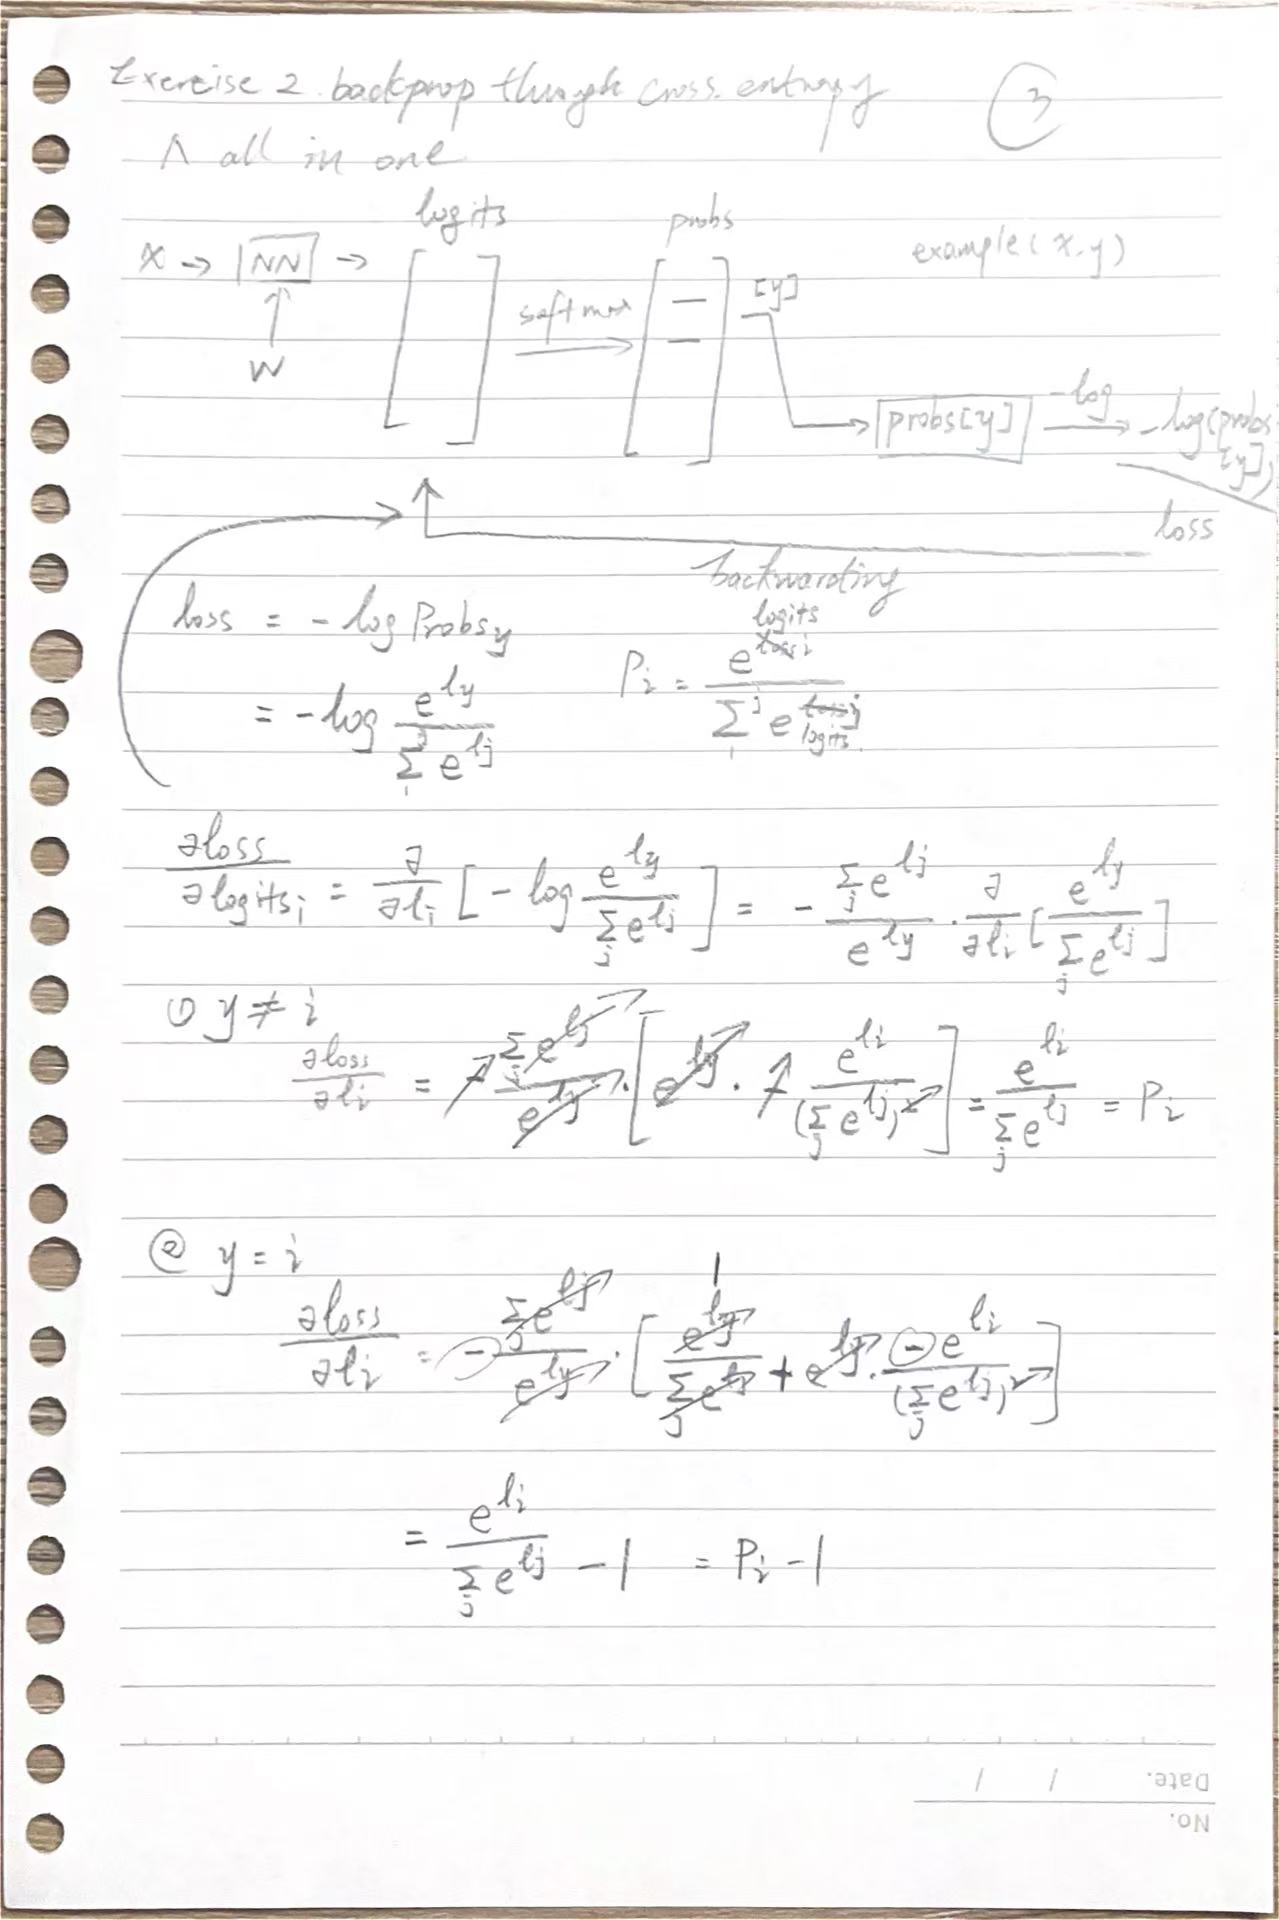 Exercise 2. backprop through cross. entropy
③
all in one
logits
probs
x → |NN| →
softmax
[y]
example (x.y)
W
probs[y]
-log
-log(probs[y])
loss
backwarding
loss = - log Probs_y
= - log e^{l_y} / Σ_j e^{l_j}
P_i = e^{logits i} / Σ^j e^{logits}
∂loss / ∂logits_i = ∂/∂l_i [ - log e^{l_y} / Σ_j e^{l_j} ] = - Σ_j e^{l_j} / e^{l_y} · ∂/∂l_i [ e^{l_y} / Σ_j e^{l_j} ]
① y ≠ i
∂loss / ∂l_i = - Σ_j e^{l_j} / e^{l_y} · [ e^{l_y} · - e^{l_i} / (Σ_j e^{l_j})^2 ] = e^{l_i} / Σ_j e^{l_j} = P_i
② y = i
∂loss / ∂l_i = - Σ_j e^{l_j} / e^{l_y} · [ e^{l_y} / Σ_j e^{l_j} + e^{l_y} · - e^{l_i} / (Σ_j e^{l_j})^2 ]
1
= e^{l_i} / Σ_j e^{l_j} - 1 = P_i - 1
Date. / /
No.